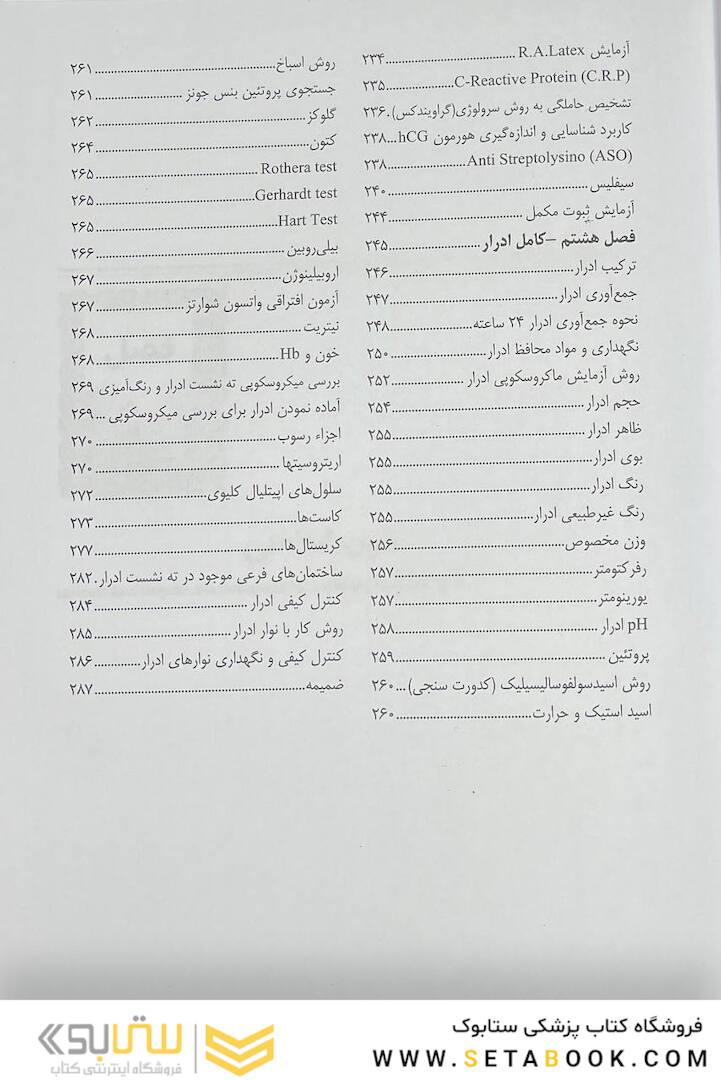 آزمایش R.A.Latex ........................................ ۲۳۴
C-Reactive Protein (C.R.P) ..................... ۲۳۵
تشخیص حاملگی به روش سرولوژی(گراویندکس). ۲۳۶
کاربرد شناسایی و اندازه‌گیری هورمون hCG... ۲۳۸
Anti Streptolysino (ASO) ......................... ۲۳۸
سیفلیس ................................................ ۲۴۰
آزمایش ثبوت مکمل .................................. ۲۴۴
فصل هشتم –کامل ادرار ............................. ۲۴۵
ترکیب ادرار ............................................. ۲۴۶
جمع‌آوری ادرار ......................................... ۲۴۷
نحوه جمع‌آوری ادرار ۲۴ ساعته .................... ۲۴۸
نگهداری و مواد محافظ ادرار ........................ ۲۵۰
روش آزمایش ماکروسکوپی ادرار .................. ۲۵۲
حجم ادرار .............................................. ۲۵۴
ظاهر ادرار .............................................. ۲۵۵
بوی ادرار ................................................ ۲۵۵
رنگ ادرار ................................................ ۲۵۵
رنگ غیرطبیعی ادرار ................................. ۲۵۵
وزن مخصوص .......................................... ۲۵۶
رفرکتومتر ............................................... ۲۵۷
یورینومتر ................................................ ۲۵۷
pH ادرار ................................................. ۲۵۸
پروتئین .................................................. ۲۵۹
روش اسیدسولفوسالیسیلیک (کدورت سنجی) ... ۲۶۰
اسید استیک و حرارت ................................ ۲۶۰
روش اسباخ ............................................. ۲۶۱
جستجوی پروتئین بنس جونز ...................... ۲۶۱
گلوکز ..................................................... ۲۶۲
کتون ...................................................... ۲۶۴
Rothera test ........................................... ۲۶۵
Gerhardt test .......................................... ۲۶۵
Hart Test ................................................ ۲۶۵
بیلی‌روبین ............................................... ۲۶۶
اروبیلینوژن .............................................. ۲۶۷
آزمون افتراقی واتسون شوارتز ...................... ۲۶۷
نیتریت ................................................... ۲۶۸
خون و Hb .............................................. ۲۶۸
بررسی میکروسکوپی ته نشست ادرار و رنگ‌آمیزی ۲۶۹
آماده نمودن ادرار برای بررسی میکروسکوپی ... ۲۶۹
اجزاء رسوب ............................................ ۲۷۰
اریتروسیتها ............................................. ۲۷۰
سلول‌های اپیتلیال کلیوی ............................ ۲۷۲
کاست‌ها ................................................. ۲۷۳
کریستال‌ها .............................................. ۲۷۷
ساختمان‌های فرعی موجود در ته نشست ادرار. ۲۸۲
کنترل کیفی ادرار ..................................... ۲۸۴
روش کار با نوار ادرار .................................. ۲۸۵
کنترل کیفی و نگهداری نوارهای ادرار ............ ۲۸۶
ضمیمه ................................................... ۲۸۷
فروشگاه کتاب پزشکی ستابوک
WWW.SETABOOK.COM
ستابوک
فروشگاه اینترنتی کتاب